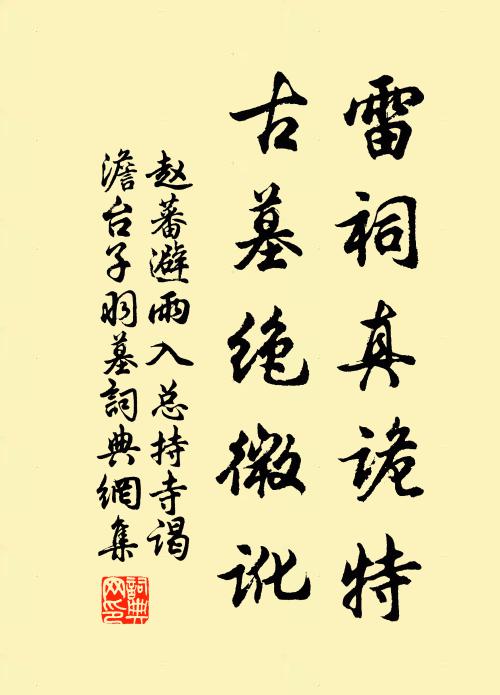 雷祠真诡特
古墓绝微讹
赵蕃避雨入总持寺谒
澹台子羽墓詞典網集